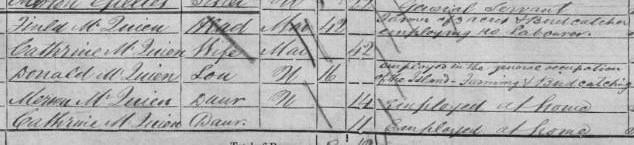 General Servant
Finla McQuien Head Mar 42 Farmer of 3 acres & Bird catcher employing no labourer
Cathrine McQuien Wife Mar 42
Donald McQuien Son U 16 employed in the general occupation of the Island - Farming & Bird catching
McQuien Daur U 14 Employed at home
Cathrine McQuien Daur. 11 Employed at home